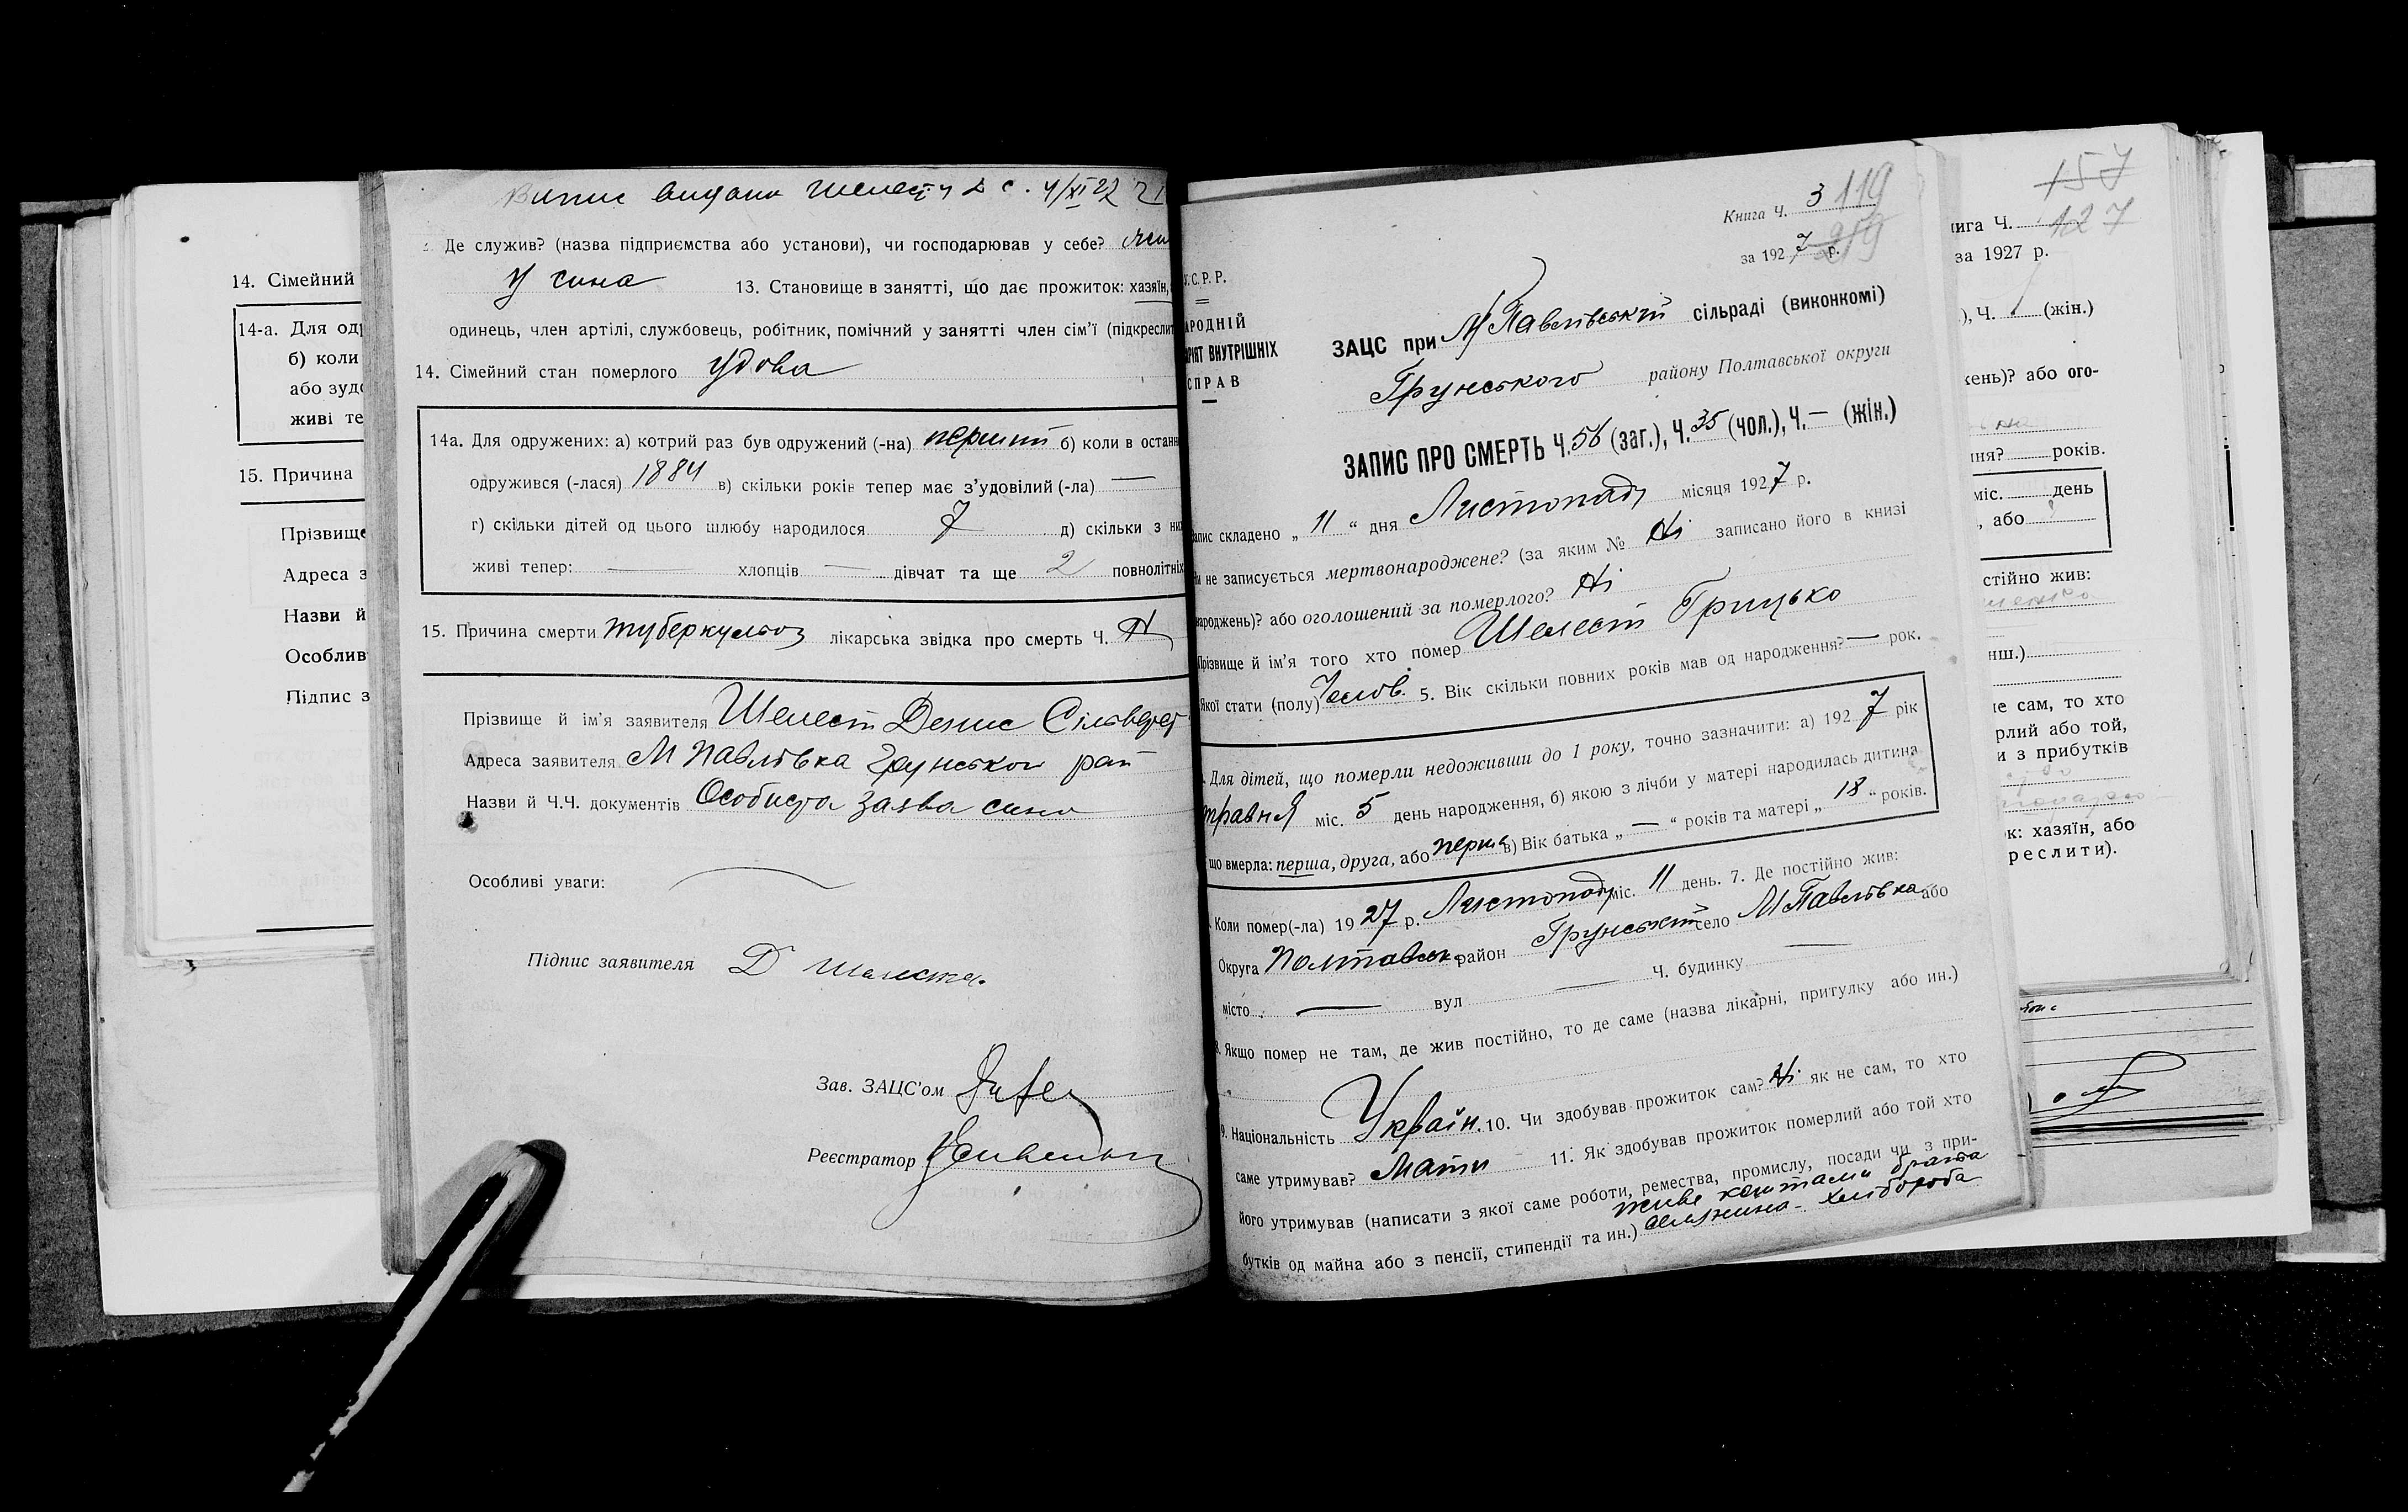 14. Сімейний
14-а. Для од
б) коли
або зуд
живі те
15. Причина
Прізвище
Адреса з
Назви й
Особлив
Підпис з
Випис видано Шелест Д С. 4/XI 27
Де служив? (назва підприємства або установи), чи господарював у себе?
у сина 13. Становище в занятті, що дає прожиток: хазяїн,
одинець, член артілі, службовець, робітник, помічний у занятті член сім'ї (підкреслит
14. Сімейний стан померлого удова
14а. Для одружених: а) котрий раз був одружений (-на) перший б) коли в останн
одружився (-лася) 1884 в) скільки років тепер має з'удовілий (-ла) —
г) скільки дітей од цього шлюбу народилося 7 д) скільки з ни
живі тепер: — хлопців — дівчат та ще 2 повнолітніх
15. Причина смерти туберкульоз лікарська звідка про смерть Ч.
Прізвище й ім'я заявителя Шелест Денис Сільвест
Адреса заявителя М Павлівка Грунськог рай
Назви й Ч.Ч. документів Особиста заява сина
Особливі уваги:
Підпис заявителя Д Шелест
Зав. ЗАЦС'ом
Реєстратор
Книга ч. 3 119
за 1927 р. 219
У.С.Р.Р.
АРОДНІЙ
АРІЯТ ВНУТРІШНІХ
СПРАВ
ЗАЦС при М Павлівській сільраді (виконкомі)
Грунського району Полтавської округи
ЗАПИС ПРО СМЕРТЬ Ч. 56 (заг.), Ч. 35 (чол.), Ч. — (жін.)
апис складено „ 11 “ дня Листопада місяця 1927 р.
и не записується мертвонароджене? (за яким № Ні записано його в книзі
народжень)? або оголошений за померлого? Ні
Прізвище й ім'я того хто помер Шелест Грицько
Якої стати (полу) Чолов. 5. Вік скільки повних років мав од народження? — рок.
Для дітей, що померли недоживши до 1 року, точно зазначити: а) 1927 рік
травня міс. 5 день народження, б) якою з лічби у матері народилась дитина
що вмерла: перша, друга, або перша в) Вік батька „ — “ років та матері „ 18 “ років.
Коли помер(-ла) 1927 р. Листопада міс. 11 день. 7. Де постійно жив:
Округа Полтавськ. район Грунський село М Павлівка або
місто — вул — Ч. будинку —
8. Якщо помер не там, де жив постійно, то де саме (назва лікарні, притулку або ин.)
9. Національність Україн. 10. Чи здобував прожиток сам? Ні як не сам, то хто
саме утримував? Мати 11. Як здобував прожиток померлий або той хто
його утримував (написати з якої саме роботи, ремества, промислу, посади чи з при-
живе коштами брата
бутків од майна або з пенсії, стипендії та ин.) селянина - хлібороба
157
нига Ч. 127
за 1927 р.
), Ч. (жін.)
жень)? або ого-
ння? років.
міс. день
, або
стійно жив:
нш.)
не сам, то хто
рлий або той,
и з прибутків
к: хазяїн, або
реслити).